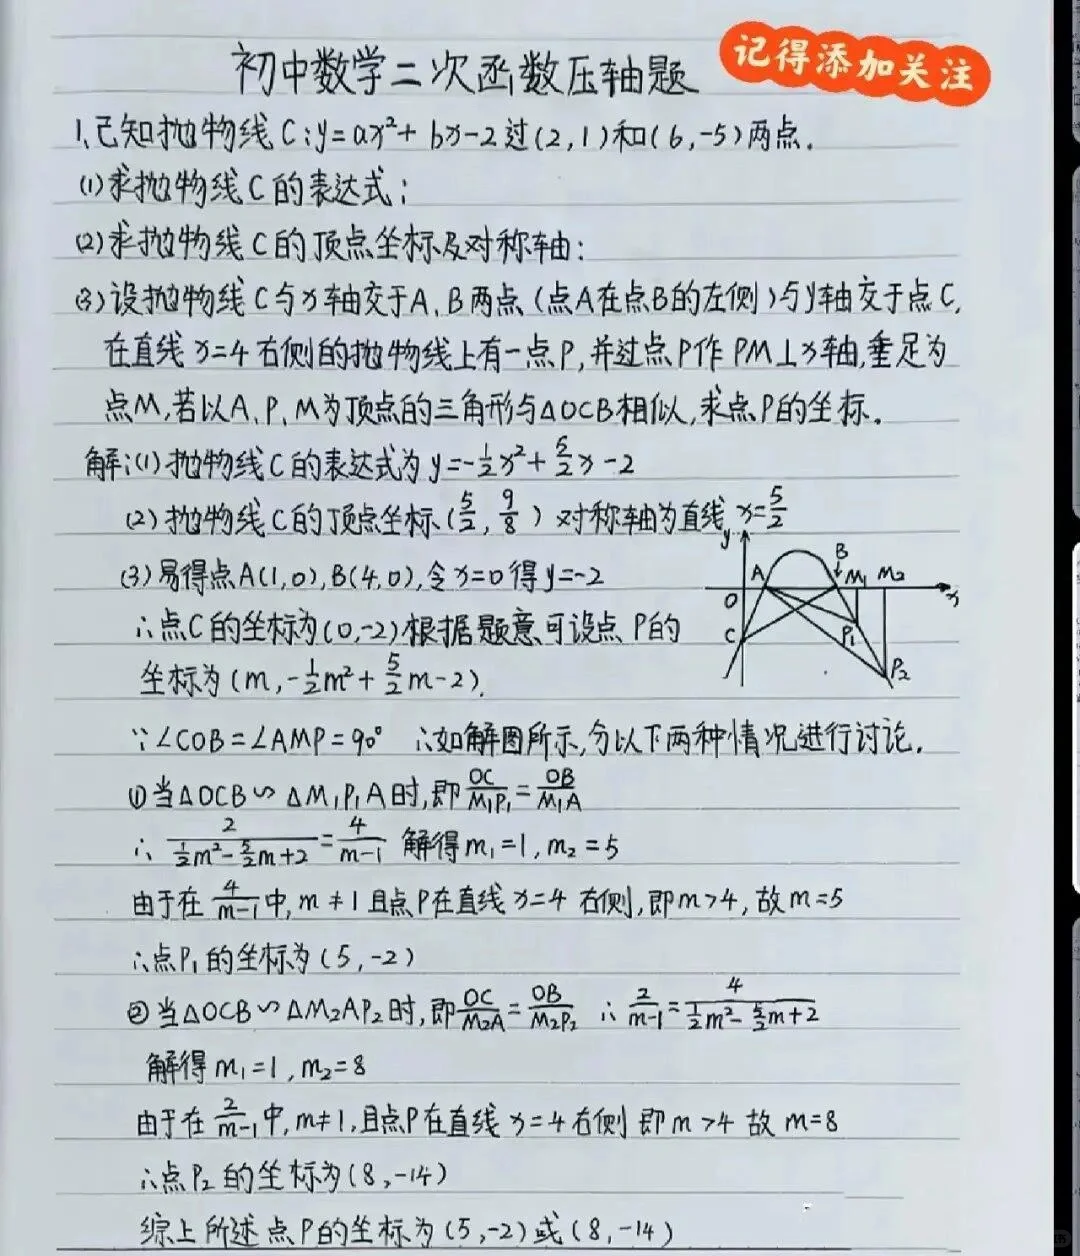 初中数学二次函数压轴题
记得添加关注
1.已知抛物线C:y=ax²+bx-2过(2,1)和(6,-5)两点.
(1)求抛物线C的表达式;
(2)求抛物线C的顶点坐标及对称轴:
(3)设抛物线C与x轴交于A、B两点(点A在点B的左侧)与y轴交于点C,
在直线x=4右侧的抛物线上有一点P,并过点P作PM⊥x轴,垂足为
点M,若以A、P、M为顶点的三角形与△OCB相似,求点P的坐标.
解:(1)抛物线C的表达式为y=-1/2x²+5/2x-2
(2)抛物线C的顶点坐标(5/2,9/8)对称轴为直线x=5/2
(3)易得点A(1,0),B(4,0),令x=0得y=-2
∴点C的坐标为(0,-2)根据题意可设点P的
坐标为(m,-1/2m²+5/2m-2).
y
B
A
M₁
M₂
x
O
C
P₁
P₂
∵∠COB=∠AMP=90° ∴如解图所示,分以下两种情况进行讨论.
①当△OCB∽△M₁P₁A时,即OC/M₁P₁=OB/M₁A
∴2/(1/2m²-5/2m+2)=4/(m-1) 解得m₁=1,m₂=5
由于在4/(m-1)中,m≠1且点P在直线x=4右侧,即m>4,故m=5
∴点P₁的坐标为(5,-2)
②当△OCB∽△M₂AP₂时,即OC/M₂A=OB/M₂P₂ ∴2/(m-1)=4/(1/2m²-5/2m+2)
解得m₁=1,m₂=8
由于在2/(m-1)中,m≠1,且点P在直线x=4右侧即m>4故m=8
∴点P₂的坐标为(8,-14)
综上所述点P的坐标为(5,-2)或(8,-14)